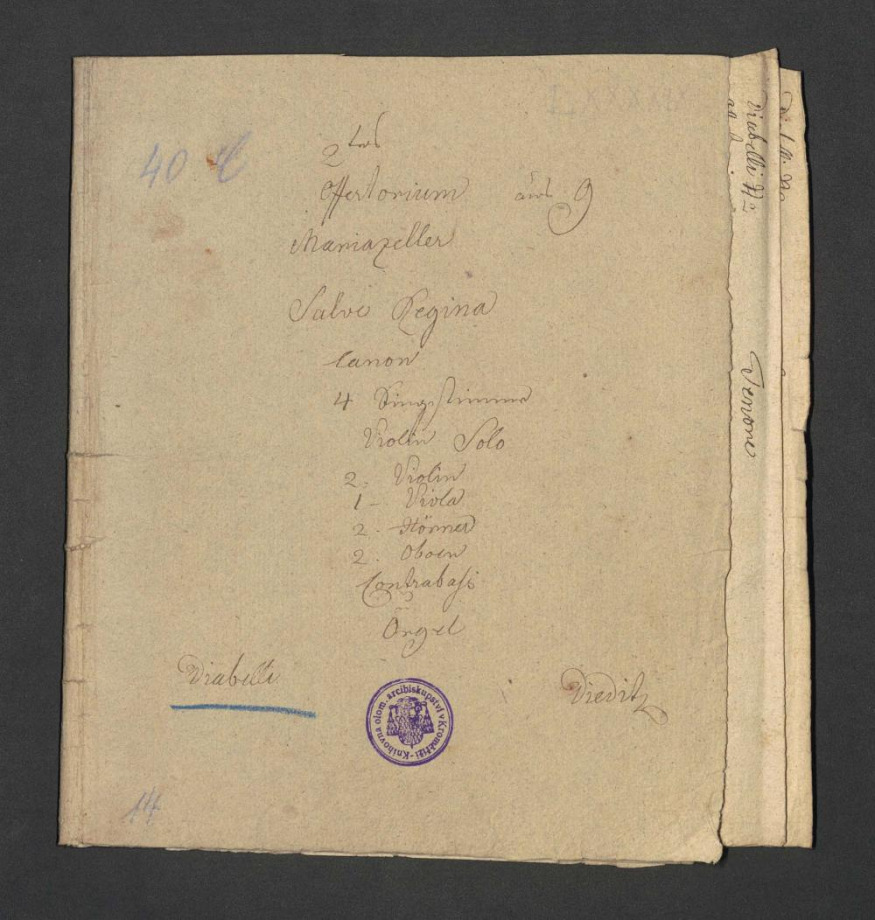 LXXXXIX
40
2tes
Offertorium aus G
Mariazeller
Salve Regina
Canon
4 Singstimme
Violin Solo
2. Violin
1 - Viola
2. Hörner
2. Oboen
Contrabass
Orgel
Diabelli
Dieditz
Knihovna olom. arcibiskupství v Kroměříži
14
Diabelli
Tenore